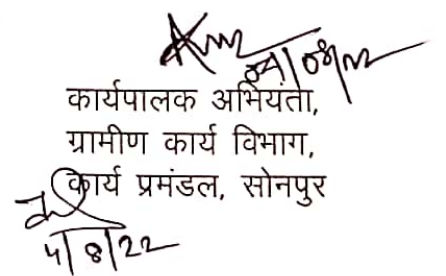 04/08/22
कार्यपालक अभियंता,
ग्रामीण कार्य विभाग,
कार्य प्रमंडल, सोनपुर
4/8/22